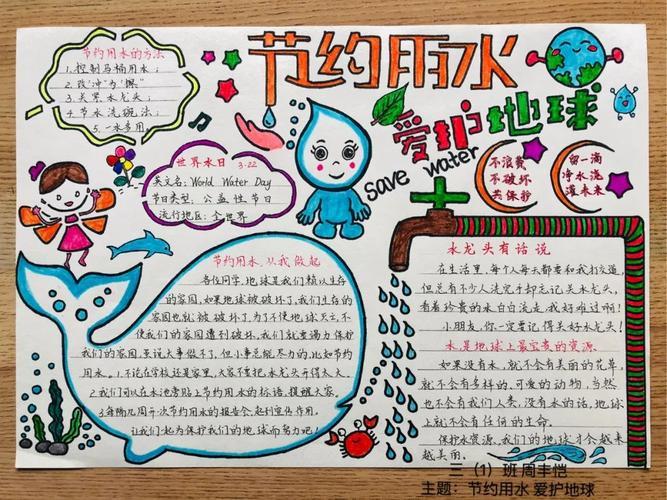 节约用水
爱护地球
save water
节约用水的方法
1.控制马桶用水；
2.改“冲”为“擦”
3.关紧水龙头；
4.节水洗碗法；
5.一水多用。
世界水日 3.22
英文名：World Water Day
节日类型：公益性节日
流行地区：全世界
不浪费
不破坏
共保护
留一滴
净水浇
灌未来
节约用水，从我做起
各位同学，地球是我们赖以生存
的家园，如果地球被破坏了，我们生存的
家园也就被破坏了。为了不使地球灭亡，不
使我们的家园遭到破坏，我们就要竭力保护
我们的家园。虽说大事做不了，但小事总能尽力的，比如节约
用水。1.不论在学校还是家里，大家不要把水龙头开得太大。
2.我们可以在水池旁贴上节约用水的标语，提醒大家。
3.每隔几周开一次节约用水的报告会，起到宣传作用。
让我们一起为保护我们的地球而努力吧！
水龙头有话说
在生活里，每个人每天都要和我打交道，
但总有不少人洗完手却忘记关水龙头，
看着珍贵的水白白流走，我好难过啊！
小朋友，你一定要记得关好水龙头！
水是地球上最宝贵的资源
如果没有水，就不会有美丽的花草，
就不会有多样的、可爱的动物，当然
也不会有我们人类，没有水的话，地球
上就不会有任何的生命。
保护水资源，我们的地球才会越来
越美丽。
三（1）班 周丰恺
主题：节约用水 爱护地球